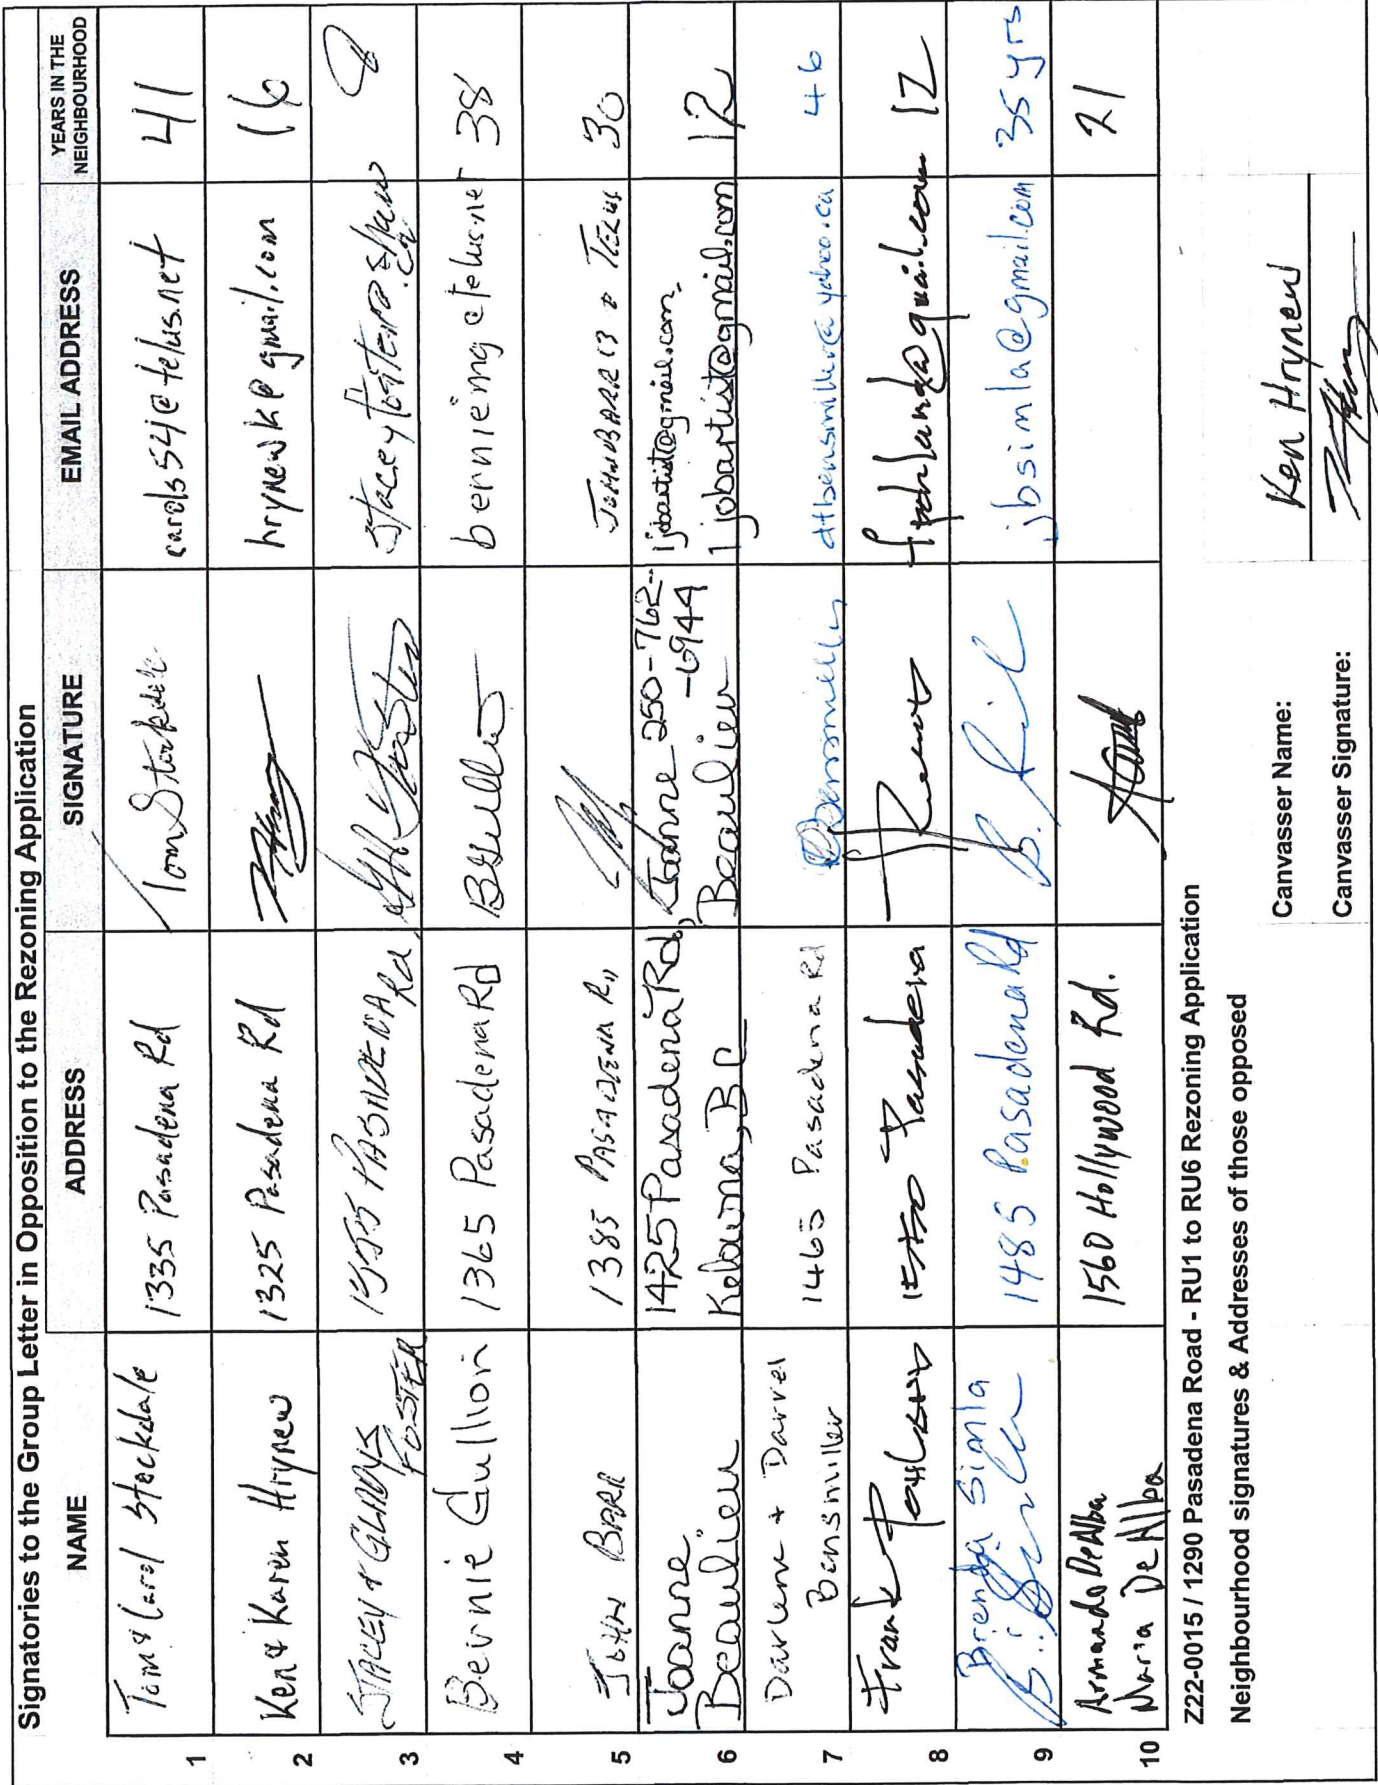 Signatories to the Group Letter in Opposition to the Rezoning Application
NAME ADDRESS SIGNATURE EMAIL ADDRESS YEARS IN THE NEIGHBOURHOOD
1 Tom & Carol Stockdale 1335 Pasadena Rd Tom Stockdale carols54@telus.net 41
2 Ken & Karin Hrynew 1325 Pasadena Rd hrynewk@gmail.com 16
3 STACEY & GLADYS FOSTER PASADENA Rd staceyfoster@shaw.ca 8
4 Bernie Gullion 1365 Pasadena Rd BGullion berniemg@telus.net 38
5 JOHN BARR 1385 PASADENA Rd JOHNBARR13 TELUS 30
6 Joanne 1425 Pasadena Rd, Joanne 250-762- 1jobartist@gmail.com,
Beaulieu Kelowna, BC Beaulieu -6944 1jobartist@gmail.com 12
7 Darlene + Darrel 1465 Pasadena Rd Bensmiller dtbensmiller@yahoo.ca 46
Bensmiller
8 Frank Pasadena 12
9 Brenda Simla 1485 Pasadena Rd B. jbsimla@gmail.com 35 yrs
10 Armando DeAlba 1560 Hollywood Rd. 21
Maria DeAlba
Z22-0015 / 1290 Pasadena Road - RU1 to RU6 Rezoning Application
Neighbourhood signatures & Addresses of those opposed
Canvasser Name: Ken Hrynew
Canvasser Signature: